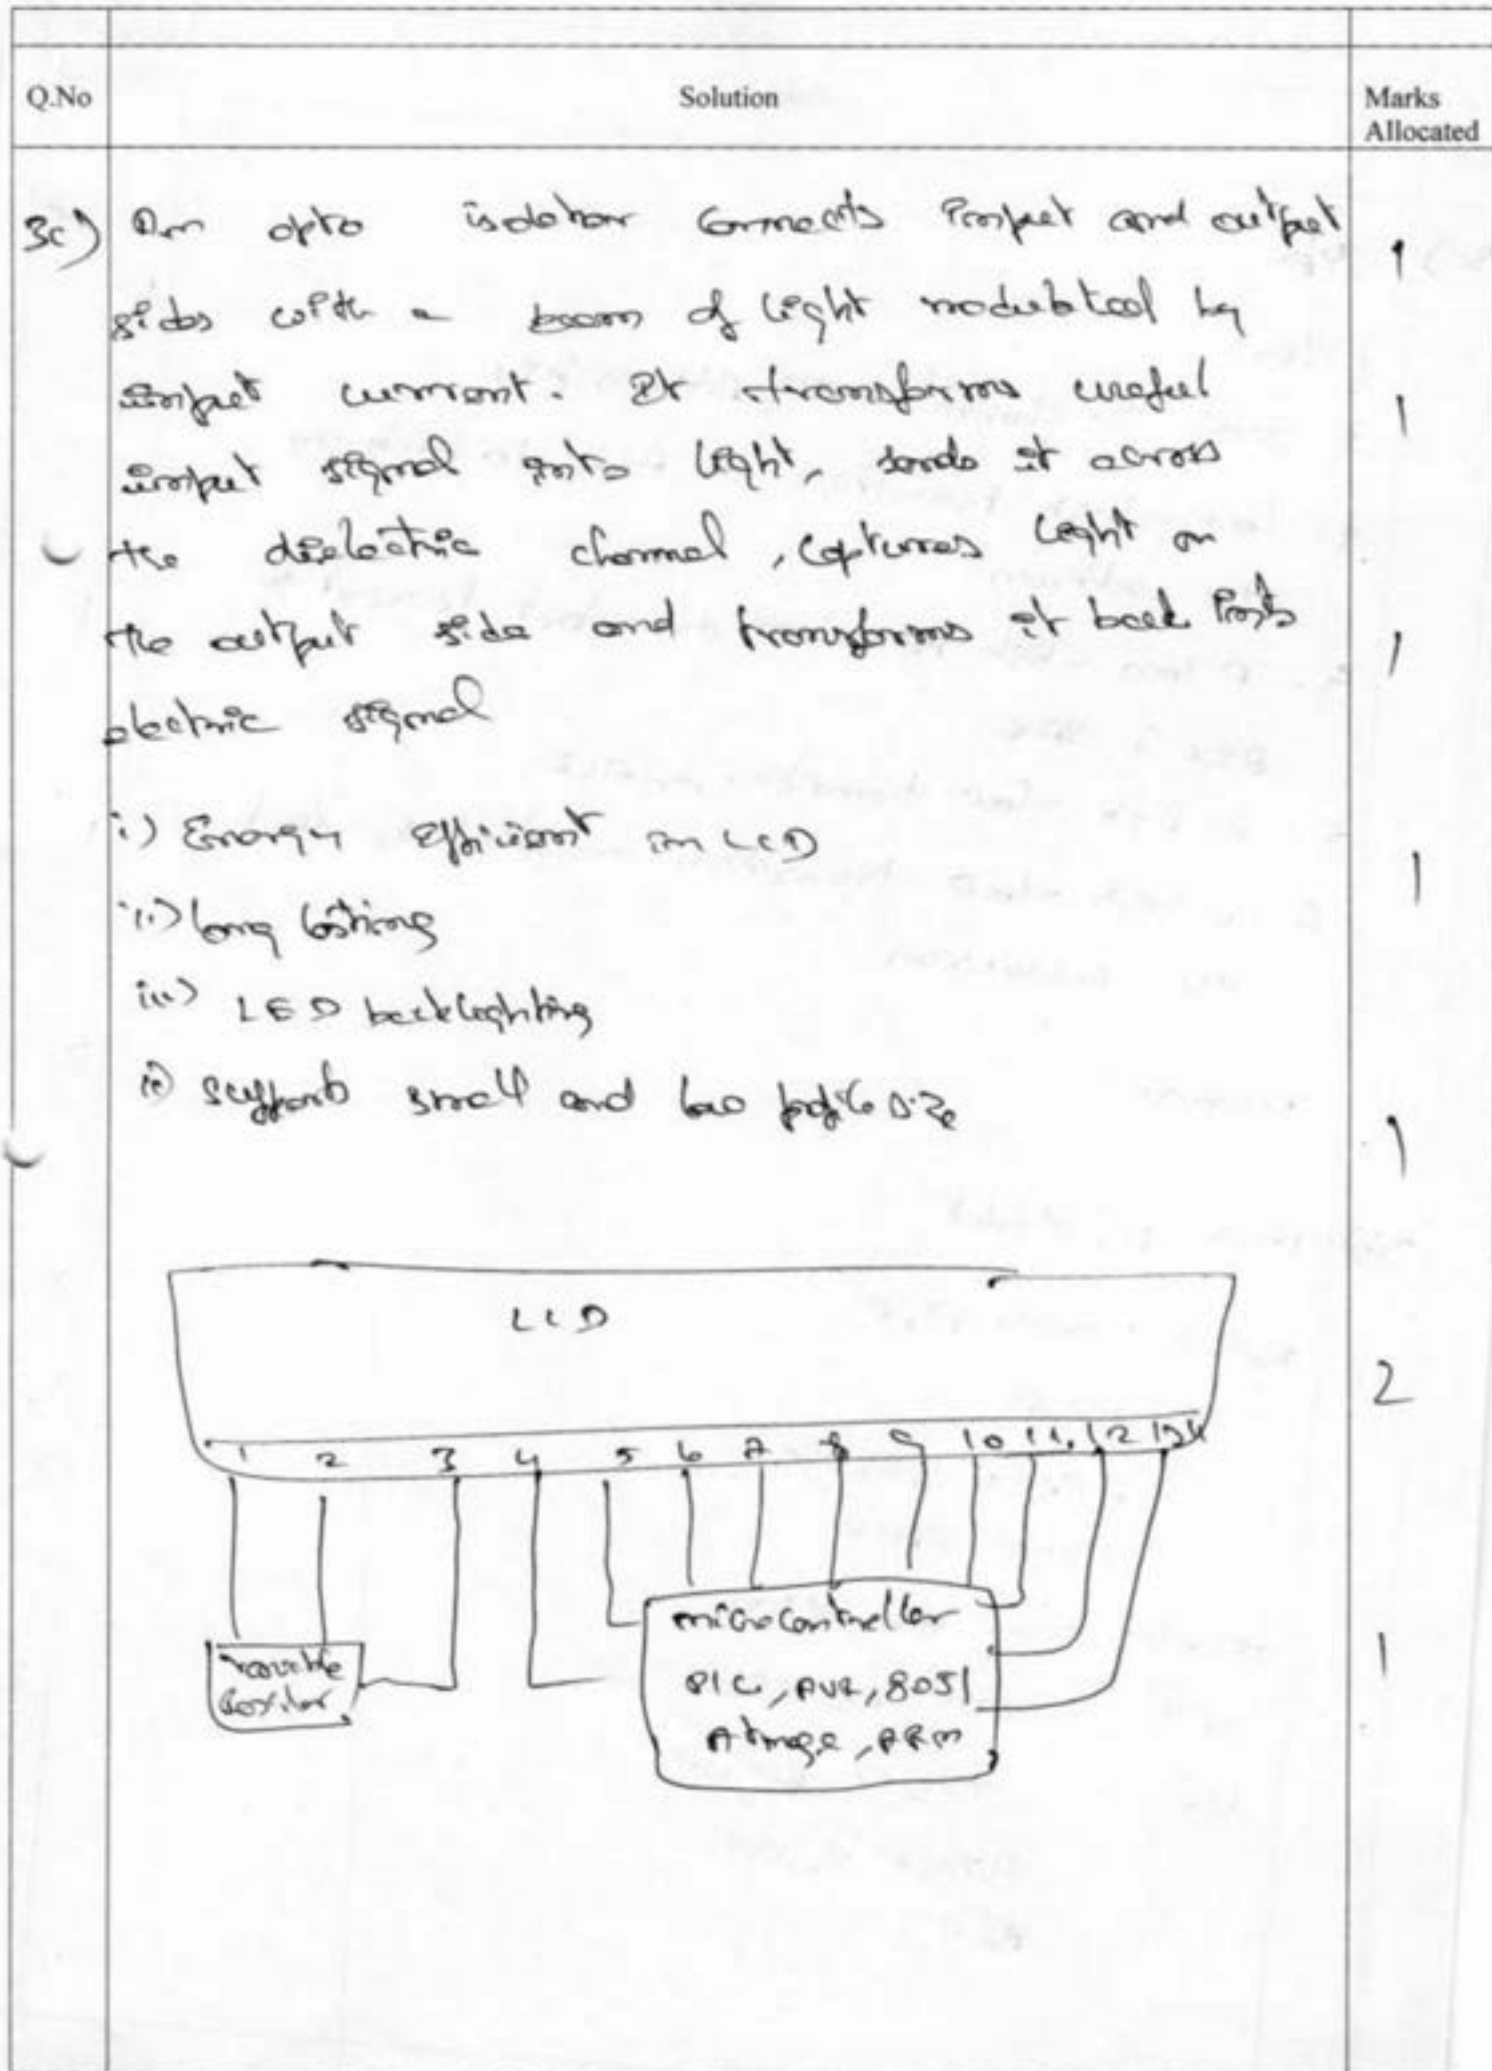 Q.No Solution Marks Allocated
3c) An opto isolator connects input and output 1
sides with a beam of light modulated by
input current. It transforms useful 1
input signal into light, sends it across
the dielectric channel, captures light on
the output side and transforms it back into 1
electric signal
i) Energy efficient in LCD 1
ii) long lasting
iii) LED backlighting
iv) supports small and low profile size 1
LCD
2
1 2 3 4 5 6 7 8 9 10 11 12 13
microcontroller
PIC, AVR, 8051 1
Atmega, ARM